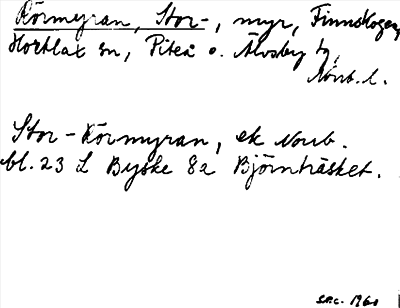 Rörmyran, Stor-, myr, Finnskogen,
Hortlax sn, Piteå o. Älvsby tg,
Norrb. l.
Stor-Rörmyran, ek Norrb.
bl. 23 L Byske 82 Björnträsket.
1961